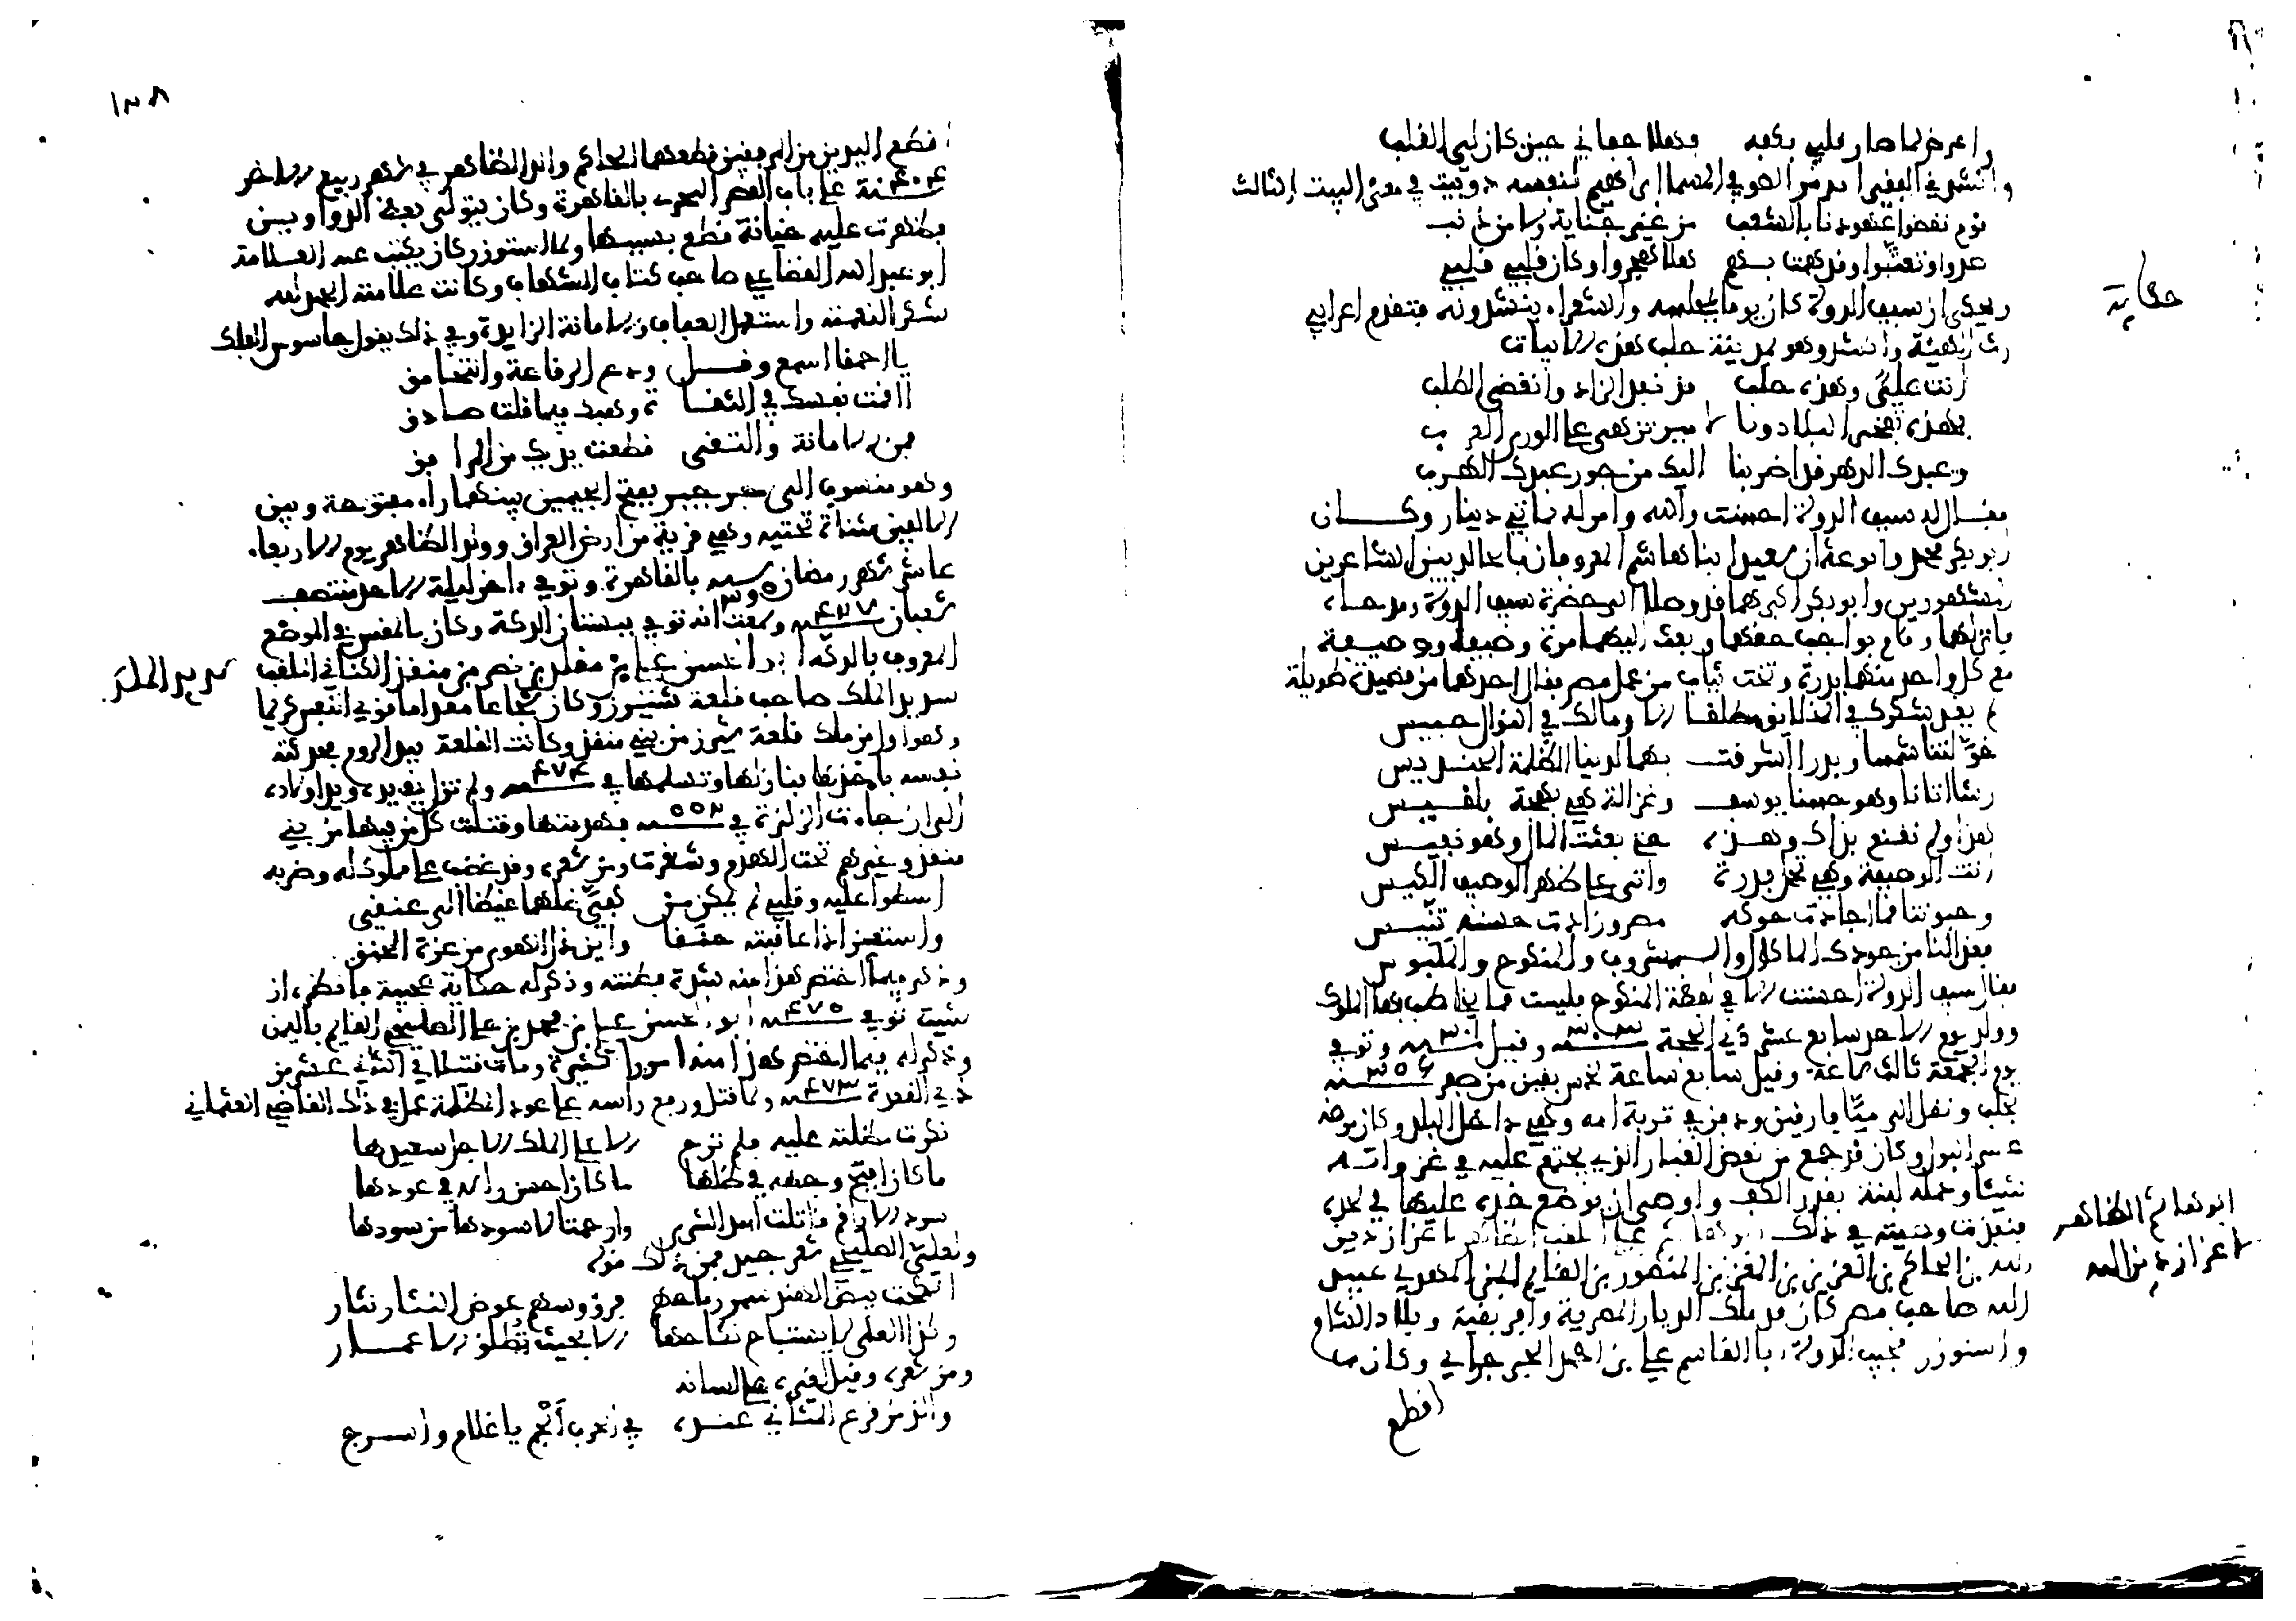 واعرض لما صار قلبي بكفه وهلا جفاني حين كان لي القلب
قوم نقضوا عهودنا بالشعب من غير جناية ولا من ذنب
صدوا وتعتبوا وقد همت بهم هلا هجروا وكان قلبي قلبي
حكاية
ويحكى ان سيف الدولة كان يوما بمجلسه والشعراء ينشدونه فتقدم اعرابي
رث الهيئة وانشد وهو بمدينة حلب هذه الابيات
انت علي وهذه حلب قد نفد الزاد وانقضى الطلب
بهذه تفخر البلاد وبالامير تزهى على الورى العرب
وعبدك الدهر قد اضر بنا اليك من جور عبدك الهرب
فقال له سيف الدولة احسنت والله وامر له بمائتي دينار وكان
ابو بكر محمد وابو عثمان سعيد ابنا هاشم المعروفان بالخالديين الشاعرين
المشهورين وابو بكر اكبرهما قد وصلا الى حضرة سيف الدولة ومدحاه
فانزلهما وقام بواجب حقهما وبعث اليهما مرة وصيفا ووصيفة
مع كل واحد منهما بدرة وتخت ثياب من عمل مصر فقال احدهما من قصيدة طويلة
لم يغد شكرك في الخلائق مطلقا الا ومالك في النوال حبيس
خولتنا شمسا وبدرا اشرقت بهما لدينا الظلمة الحنديس
رشا اتانا وهو حسنا يوسف وغزالة هي بهجة بلقيس
هذا ولم تقنع بذاك وهذه حتى بعثت المال وهو نفيس
اتت الوصيفة وهي تحمل بدرة واتى على ظهر الوصيف الكيس
وحبوتنا مما اجادت حوكه مصر وزادت حسنه تنيس
فغدا لنا من جودك الماكول والمشروب والمنكوح والملبوس
فقال سيف الدولة احسنت الا في لفظة المنكوح فليست مما يخاطب بها الملوك
وولد يوم الاحد سابع عشر ذي الحجة سنة ٣٠٣ وقيل سنة ٣٠١ وتوفي
يوم الجمعة ثالث ساعة وقيل سابع ساعة لخمس بقين من صفر سنة ٣٥٦
بحلب ونقل الى ميافارقين ودفن في تربة امه وهي داخل البلد وكان مرضه
عسر البول وكان قد جمع من نفض الغبار الذي يجتمع عليه في غزواته
شيئا وعمله لبنة بقدر الكف واوصى ان يوضع خده عليها في لحده
ابو هاشم الظاهر
لاعزاز دين الله
فنفذت وصيته في ذلك ابو هاشم علي الملقب الظاهر لاعزاز دين
الله بن الحاكم بن العزيز بن المعز بن المنصور بن القايم بن المهدي عبيد
الله صاحب مصر كان قد ملك الديار المصرية وافريقية وبلاد الشام
واستوزر نجيب الدولة ابا القاسم علي بن احمد الجرجراني وكان
اقطع
١٣٨
اقطع اليدين من المرفقين قطعهما الحاكم والد الظاهر في شهر ربيع الاخر
سنة ٤٠٤ على باب القصر البحري بالقاهرة وكان يتولى بعض الدواوين
فظهرت عليه خيانة فقطع بسببها ولما استوزر كان يكتب عنه العلامة
ابو عبد الله القضاعي صاحب كتاب الشهاب وكانت علامته الحمد لله
شكرا لنعمته واستعمل العفاف والامانة الزايدة وفي ذلك يقول جاسوس الفلك
يا احمقا اسمع وقل ودع الرقاعة والتحامق
اأقمت نفسك في الثقاة وهبك فيما قلت صادق
فمن الامانة والتقى قطعت يديك من المرافق
وهو منسوب الى جرجير بفتح الجيمين بينهما راء مفتوحة وبين
الالفين مثناة تحتية وهي قرية من ارض العراق وولد الظاهر يوم الاربعاء
عاشر شهر رمضان سنة ٣٩٥ بالقاهرة وتوفي اخر ليلة الاحد منتصف
شعبان سنة ٤٢٧ وسمعت انه توفي ببستان الدكة وكان بالمقس في الموضع
سديد الملك
المعروف بالدكة ابو الحسن علي بن مقلد بن نصر بن منقذ الكناني الملقب
سديد الملك صاحب قلعة شيزر وكان شجاعا مقداما قوي النفس كريما
وهو اول من ملك قلعة شيزر من بني منقذ وكانت القلعة بيد الروم فحدثته
نفسه باخذها فنازلها وتسلمها في سنة ٤٧٤ ولم تزل في يده ويد اولاده
الى ان جاءت الزلزلة في سنة ٥٥٢ فهدمتها وقتلت كل من فيها من بني
منقذ وغيرهم تحت الهدم وشغرت ومن شعره وقد غضب على مملوك له وضربه
اسطوا عليه وقلبي لو تمكن من كفي غلهما غيظا الى عنقي
واستعير اذا عاقبته حنقا واين ذل الهوى من عزة الحنق
شيت توفي سنة ٤٧٥ ابو الحسن علي بن محمد بن علي الصليحي القايم باليمن
ذي القعدة سنة ٤٧٣ ولما قتل ورفع راسه على عود المظلة عمل في ذلك القاضي العثماني
بكرت مظلته عليه فلم ترح الا على الملك الاجل سعيدها
ما كان اقبح وجهه في ظلها ما كان احسن راسه في عودها
سود الاراقم قاتلت اسد الشرى وارحمتا لاسودها من سودها
ولعلي الصليحي شعر جيد فمن ذلك قوله
انكحت بيض الهند سمر رماحهم فرؤوسهم عوض النثار نثار
وكذا العلى لا يستباح نكاحها الا بحيث تطلق الاعمار
ومن شعره وقيل لغيره على لسانه
والذ من قرع المثاني عنده في الحرب ألجم يا غلام واسرج